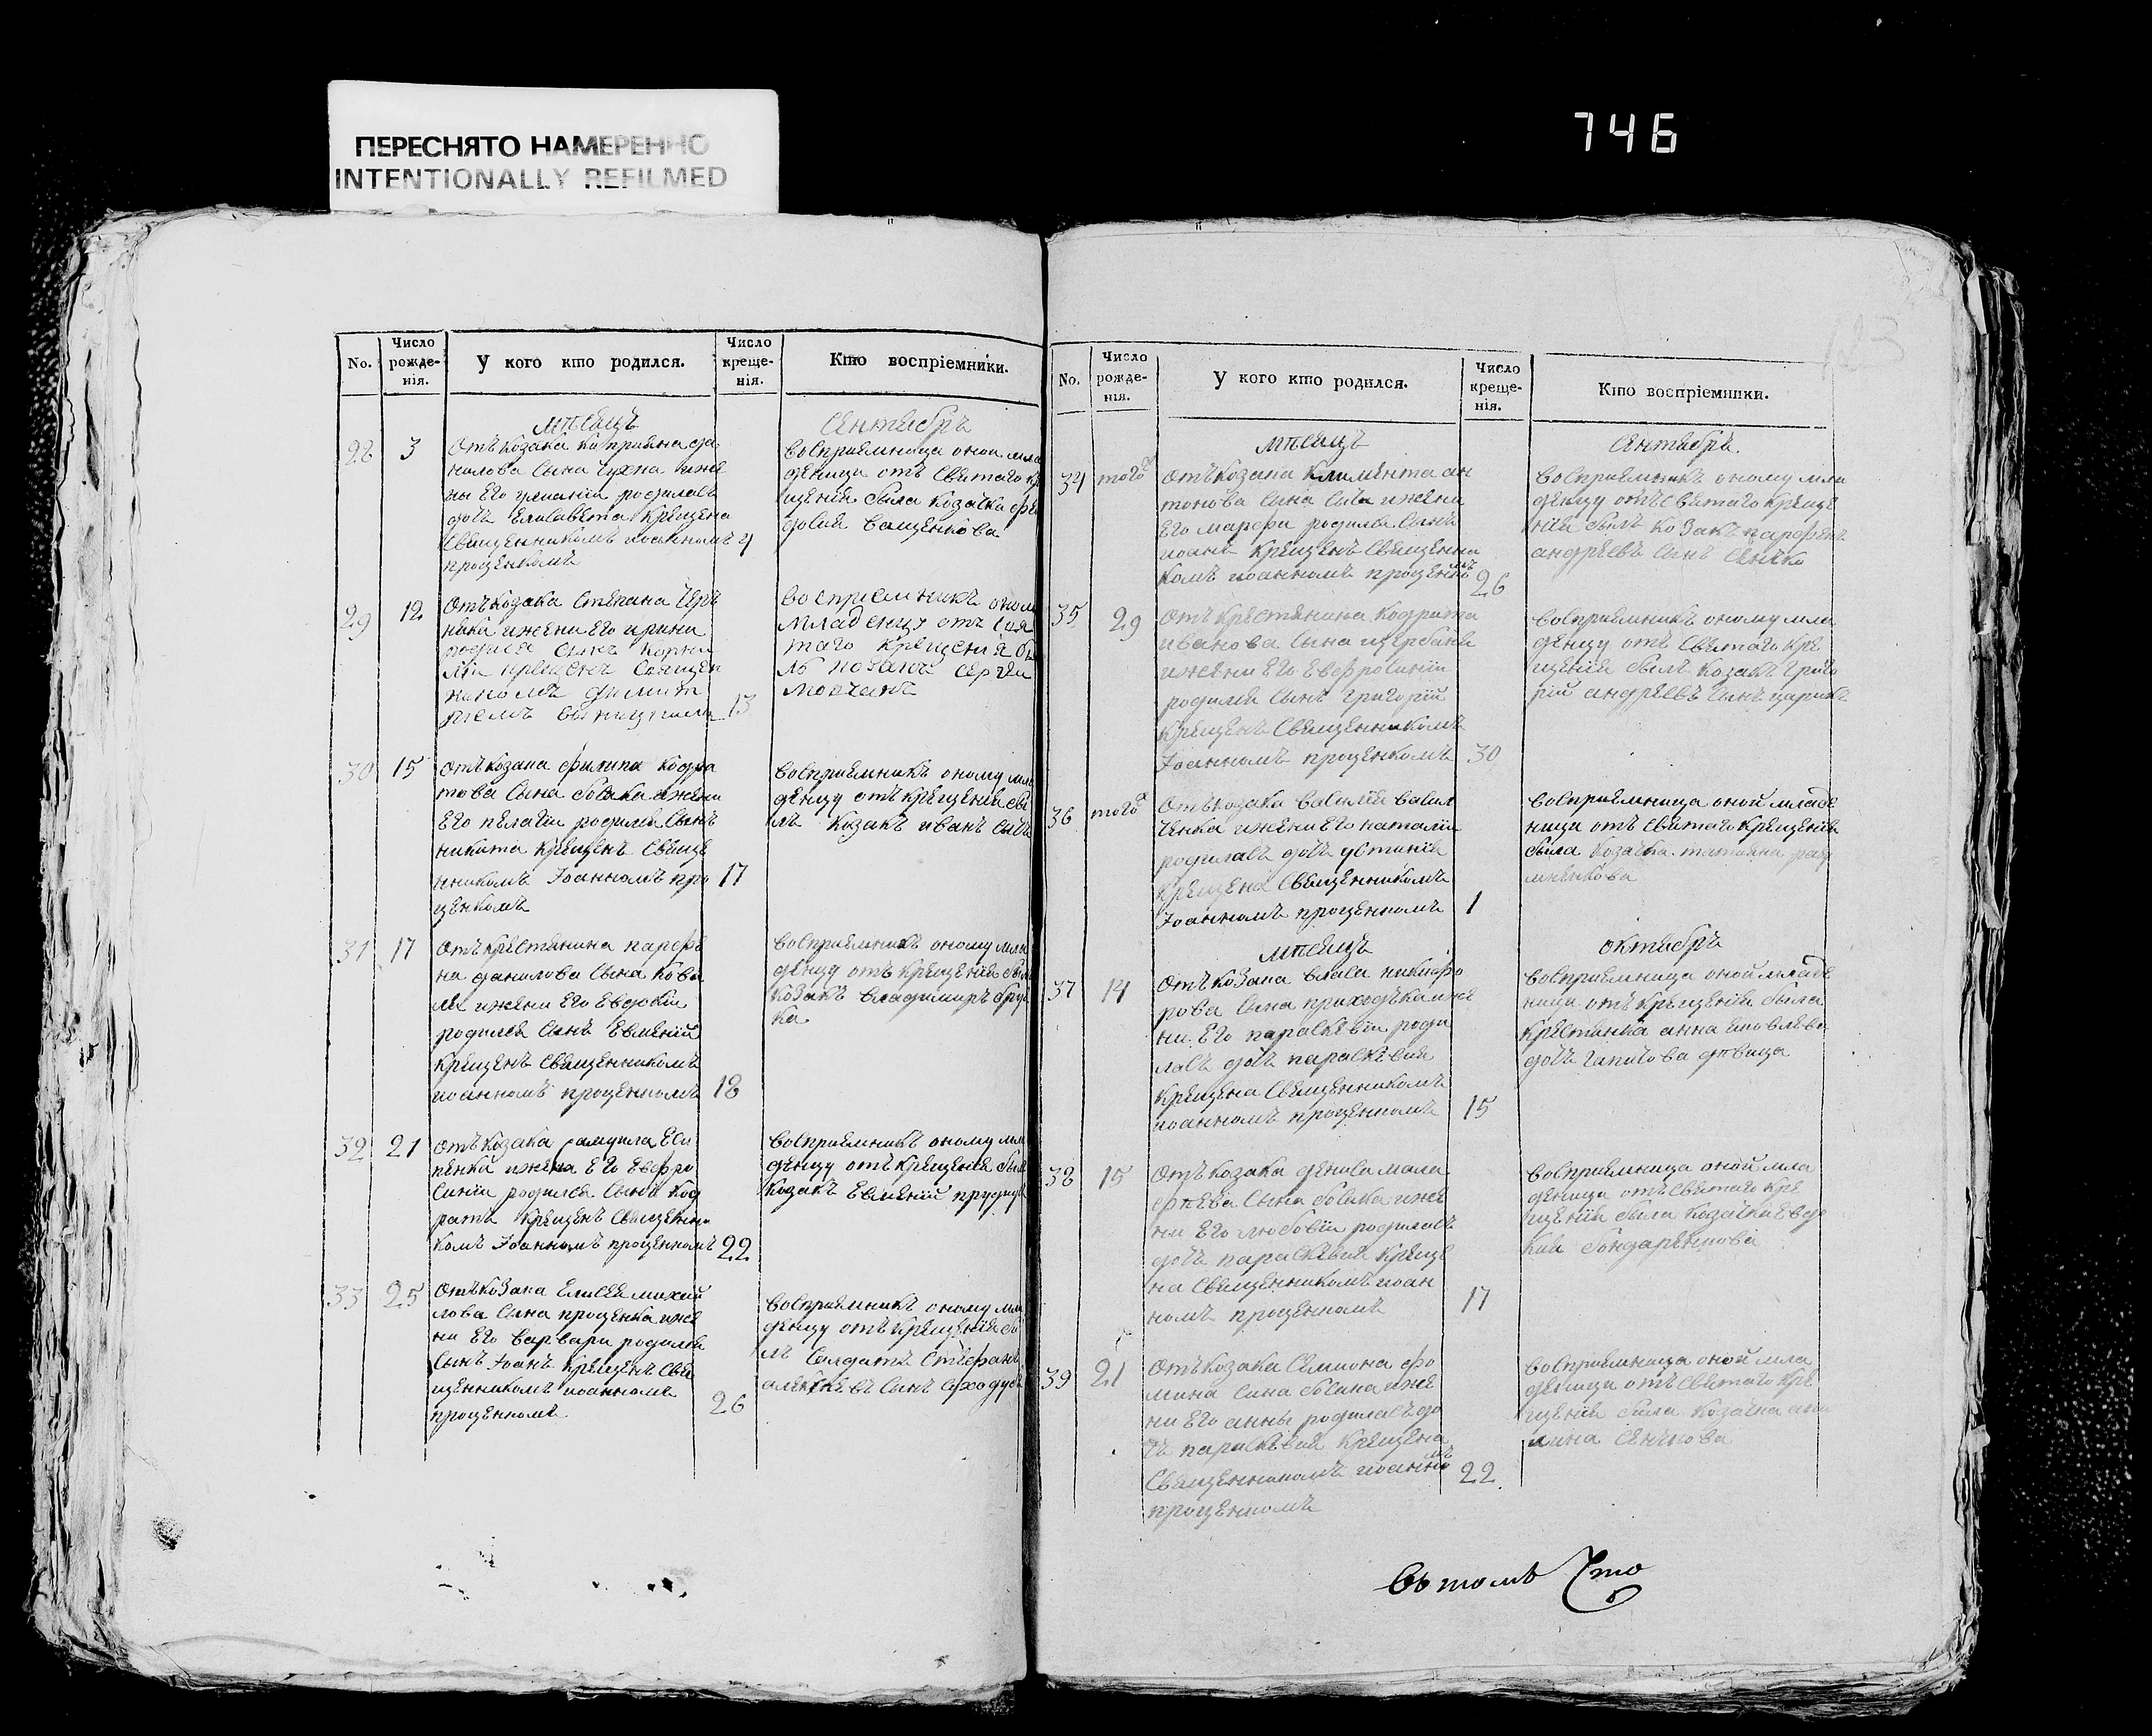 ПЕРЕСНЯТО НАМЕРЕННО
INTENTIONALLY REFILMED
746
No.
Число рожде-нія.
У кого кто родился.
Число креще-нія.
Кто воспріемники.
мѣсяцъ
Сентябрь
28
3
Отъ козака Киприяна да
нилова сына Чухна и же
ны его
родилась
дочь Елисавета крещена
священникомъ иоанномъ
проценкомъ
4
восприемница оной мла
денице отъ святаго кр
щения была козачка фео
досия Ващенкова
29
12
Отъ козака Степана Чер
няка и жени его ирини
родился сынъ Корни
лій крещенъ священ
никомъ Димит
риемъ
13
Восприемникъ оном
младенцу отъ свя
таго крещения бы
лъ козакъ сергѣй
30
15
Отъ козака филипа кодра
това сына босака и жени
его пелагіи родился сынъ
никита крещенъ свяще
нникомъ Іоанномъ про
ценкомъ
17
восприемникъ оному мла
денцу отъ крещения бы
лъ козакъ иванъ
31
17
Отъ крестянина парфе
на данилова сына кова
ля и жени его евдокии
родился сынъ Евмений
крещенъ священникомъ
иоанномъ проценкомъ
18
восприемникъ оному мла
денцу отъ крещения был
козакъ владимиръ бру
ка
32
21
Отъ козака самуила Еси
пенка и жени его Евфро
синіи родился сынъ код
ратъ крещенъ священни
комъ Іоанномъ проценкомъ
22
восприемникъ оному мла
денцу отъ крещения был
козакъ Евмений
33
25
Отъ козака Елисея михай
лова сына проценка и же
ни его варвари родился
сынъ Іоанъ крещенъ свя
щенникомъ иоанномъ
проценкомъ
26
восприемникъ оному мла
денцу отъ крещения бы
лъ солдатъ Стефанъ
алексѣевъ сынъ
No.
Число рожде-нія.
У кого кто родился.
Число креще-нія.
Кто воспріемники.
мѣсяцъ
Сентябрь.
34
того
Отъ козака климента ан
тонова сина
и жени
его марфи родился сынъ
иоанъ крещенъ священни
комъ иоанномъ проценкомъ
26
восприемникъ оному мла
денцу отъ святаго креще
ния былъ козакъ парфенъ
андреевъ сынъ Сенко
35
29
Отъ крестянина кодрата
иванова сына щербини
и жени его Евфросинии
родился сынъ григорій
крещенъ священникомъ
Іоанномъ проценкомъ
30
восприемникъ оному мла
денцу отъ святаго кре
щения былъ козакъ григо
рій андреевъ сынъ царикъ
36
того
Отъ козака василия васил
ченка и жени его наталии
родилась дочь устиния
крещена священникомъ
Іоанномъ проценкомъ
1
восприемница оной младе
нице отъ святаго крещения
была козачка татияна
мѣсяцъ
октябрь
37
14
Отъ козака власа никифо
рова сына приходька и же
ни его параскевіи роди
лась дочь параскевия
крещена священникомъ
иоанномъ проценкомъ
15
восприемница оной младе
нице отъ крещения была
крестянка анна яковлева
дочь гапичова дѣвица
38
15
Отъ козака дениса мала
фѣева сына босака и же
ни его любовіи родилась
дочь параскевия креще
на священникомъ иоан
номъ проценкомъ
17
восприемница оной мла
денице отъ святаго кре
щения была козачка Евдо
кия бондаренкова
39
21
Отъ козака Симиона фо
мина сина босака и же
ни его анны родилась до
чь параскевия крещена
священникомъ иоанномъ
проценкомъ
22.
восприемница оной мла
денице отъ святаго кре
щения была козачка
Сенкова
Въ томъ Что